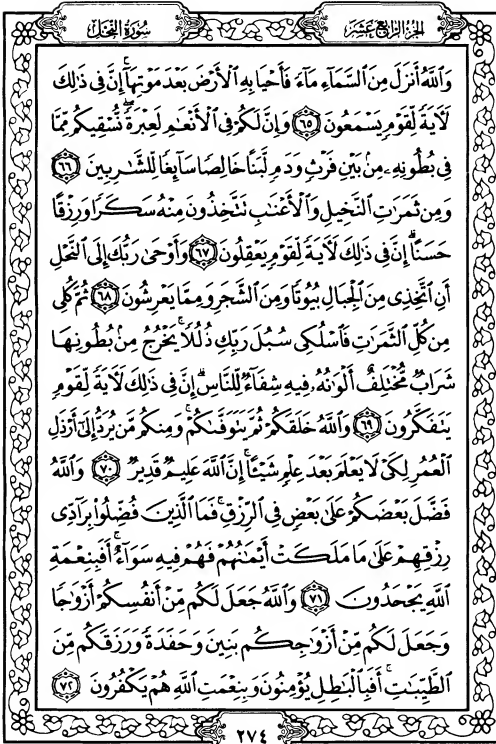 سُورَةُ النَّحْلِ الجزء الرابع عشر
وَٱللَّهُ أَنزَلَ مِنَ ٱلسَّمَآءِ مَآءً فَأَحْيَا بِهِ ٱلْأَرْضَ بَعْدَ مَوْتِهَآ ۚ إِنَّ فِى ذَٰلِكَ
لَـَٔايَةً لِّقَوْمٍ يَسْمَعُونَ ٦٥ وَإِنَّ لَكُمْ فِى ٱلْأَنْعَٰمِ لَعِبْرَةً ۖ نُّسْقِيكُم مِّمَّا
فِى بُطُونِهِۦ مِنۢ بَيْنِ فَرْثٍ وَدَمٍ لَّبَنًا خَالِصًا سَآئِغًا لِّلشَّٰرِبِينَ ٦٦
وَمِن ثَمَرَٰتِ ٱلنَّخِيلِ وَٱلْأَعْنَٰبِ تَتَّخِذُونَ مِنْهُ سَكَرًا وَرِزْقًا
حَسَنًا ۗ إِنَّ فِى ذَٰلِكَ لَـَٔايَةً لِّقَوْمٍ يَعْقِلُونَ ٦٧ وَأَوْحَىٰ رَبُّكَ إِلَى ٱلنَّحْلِ
أَنِ ٱتَّخِذِى مِنَ ٱلْجِبَالِ بُيُوتًا وَمِنَ ٱلشَّجَرِ وَمِمَّا يَعْرِشُونَ ٦٨ ثُمَّ كُلِى
مِن كُلِّ ٱلثَّمَرَٰتِ فَٱسْلُكِى سُبُلَ رَبِّكِ ذُلُلًا ۚ يَخْرُجُ مِنۢ بُطُونِهَا
شَرَابٌ مُّخْتَلِفٌ أَلْوَٰنُهُۥ فِيهِ شِفَآءٌ لِّلنَّاسِ ۗ إِنَّ فِى ذَٰلِكَ لَـَٔايَةً لِّقَوْمٍ
يَتَفَكَّرُونَ ٦٩ وَٱللَّهُ خَلَقَكُمْ ثُمَّ يَتَوَفَّىٰكُمْ ۚ وَمِنكُم مَّن يُرَدُّ إِلَىٰٓ أَرْذَلِ
ٱلْعُمُرِ لِكَىْ لَا يَعْلَمَ بَعْدَ عِلْمٍ شَيْـًٔا ۚ إِنَّ ٱللَّهَ عَلِيمٌ قَدِيرٌ ٧٠ وَٱللَّهُ
فَضَّلَ بَعْضَكُمْ عَلَىٰ بَعْضٍ فِى ٱلرِّزْقِ ۚ فَمَا ٱلَّذِينَ فُضِّلُوا۟ بِرَآدِّى
رِزْقِهِمْ عَلَىٰ مَا مَلَكَتْ أَيْمَٰنُهُمْ فَهُمْ فِيهِ سَوَآءٌ ۚ أَفَبِنِعْمَةِ
ٱللَّهِ يَجْحَدُونَ ٧١ وَٱللَّهُ جَعَلَ لَكُم مِّنْ أَنفُسِكُمْ أَزْوَٰجًا
وَجَعَلَ لَكُم مِّنْ أَزْوَٰجِكُم بَنِينَ وَحَفَدَةً وَرَزَقَكُم مِّنَ
ٱلطَّيِّبَٰتِ ۚ أَفَبِٱلْبَٰطِلِ يُؤْمِنُونَ وَبِنِعْمَتِ ٱللَّهِ هُمْ يَكْفُرُونَ ٧٢
٢٧٤